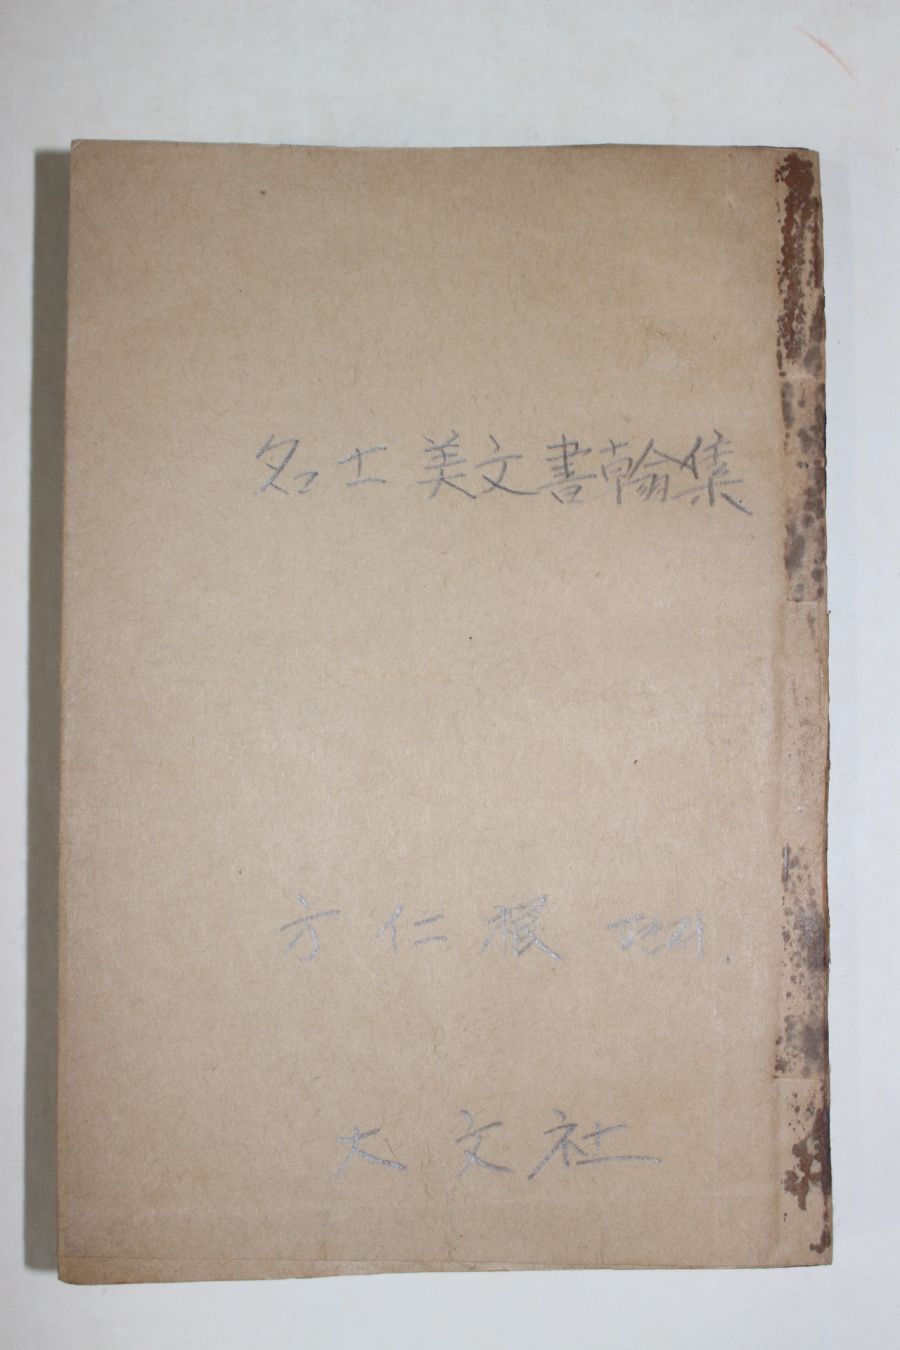 名士美文書翰集
方仁根 편저.
大文社